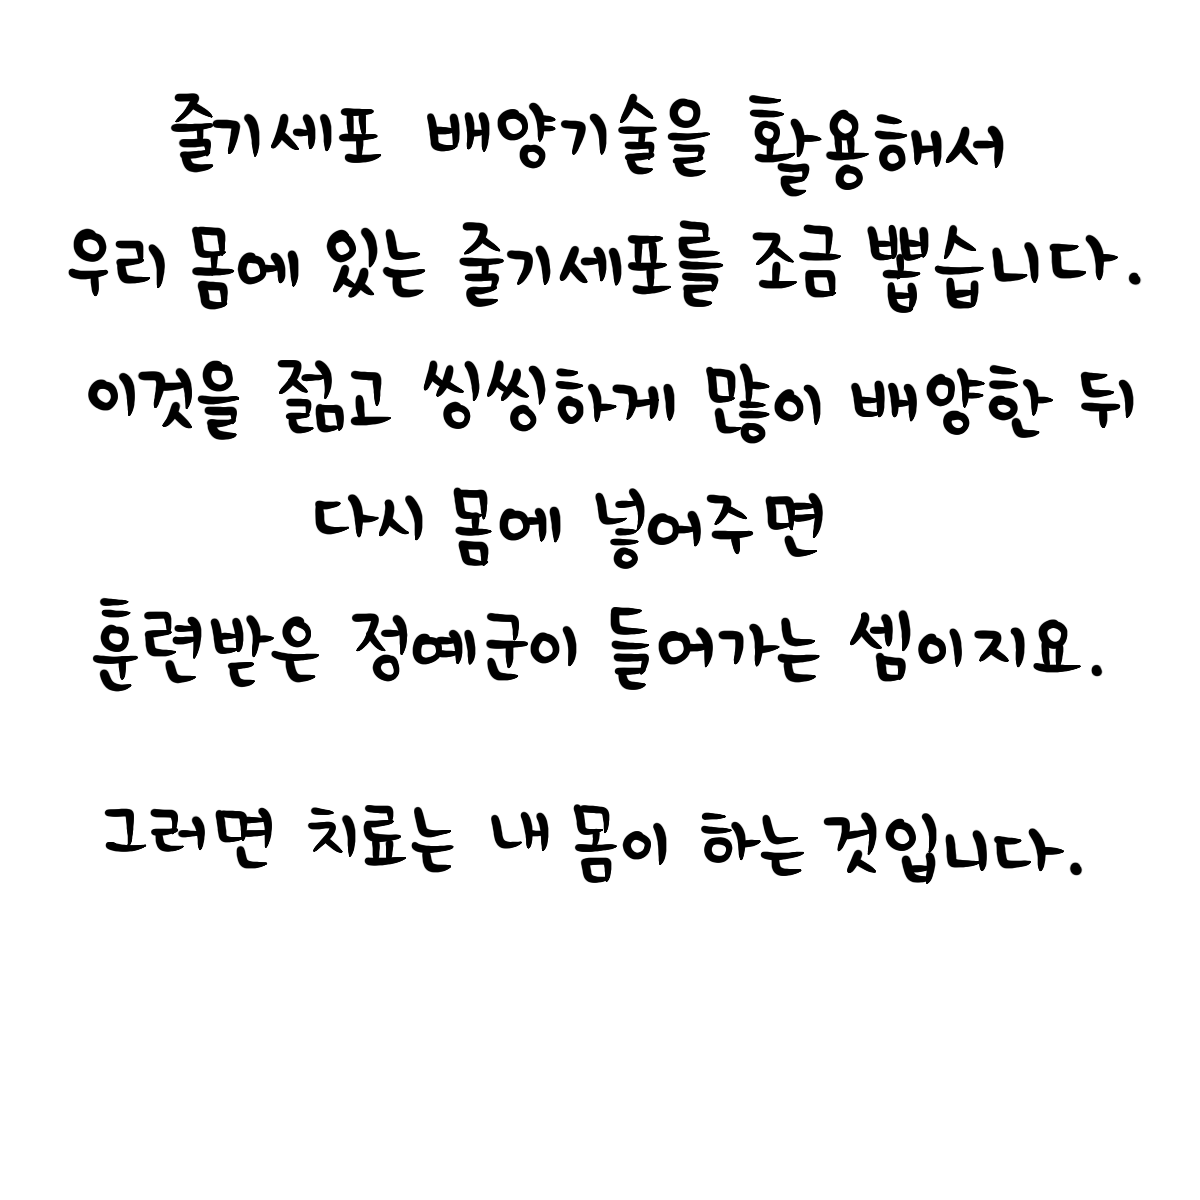 줄기세포 배양기술을 활용해서
우리 몸에 있는 줄기세포를 조금 뽑습니다.
이것을 젊고 씽씽하게 많이 배양한 뒤
다시 몸에 넣어주면
훈련받은 정예군이 들어가는 셈이지요.
그러면 치료는 내 몸이 하는 것입니다.